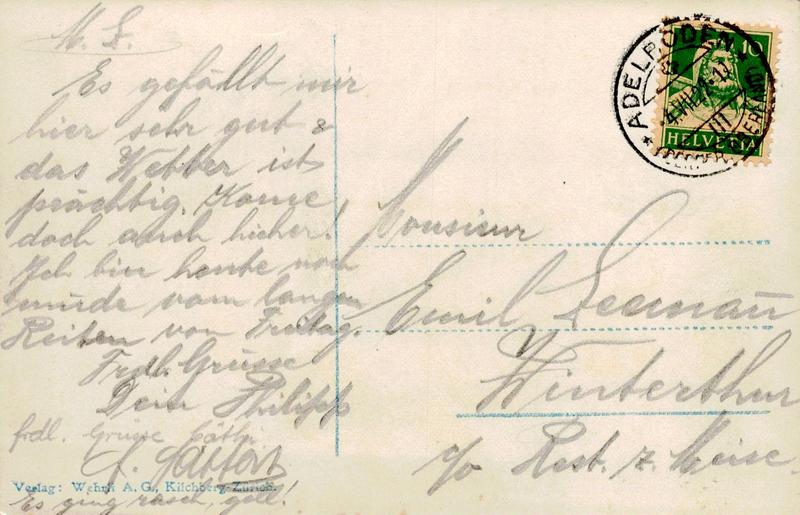 M. L.
Es gefällt mir
hier sehr gut &
das Wetter ist
prächtig. Komme,
doch auch hieher!
Ich bin heute noch
müde vom langen
Reiten von Freitag.
Frdl. Grüsse
Dein Philipp
frdl. Grüsse
Es ging rasch, gell!
Verlag: Wehrli A. G., Kilchberg-Zürich.
ADELBODEN
10
HELVETIA
Monsieur
Emil Seeman
Winterthur
p/o Rest. z. Meise.